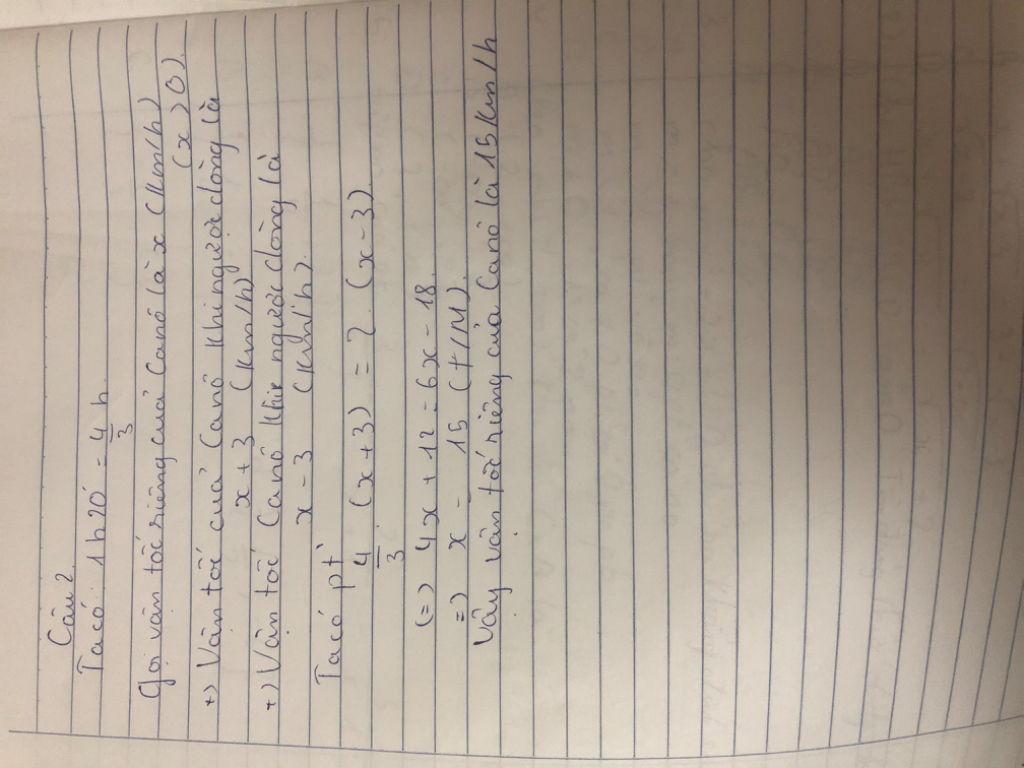 Câu 2
Ta có 1h20' = 4/3 h.
Gọi vận tốc riêng của Canô là x (km/h)
(x > 0).
+) Vận tốc của Canô khi ngược dòng là
x + 3 (km/h)
+) Vận tốc Canô khi ngược dòng là
x - 3 (km/h).
Ta có pt
4/3 (x + 3) = 2. (x - 3)
(=) 4x + 12 = 6x - 18.
=) x = 15 (t/m).
Vậy vận tốc riêng của Canô là 15 km/h